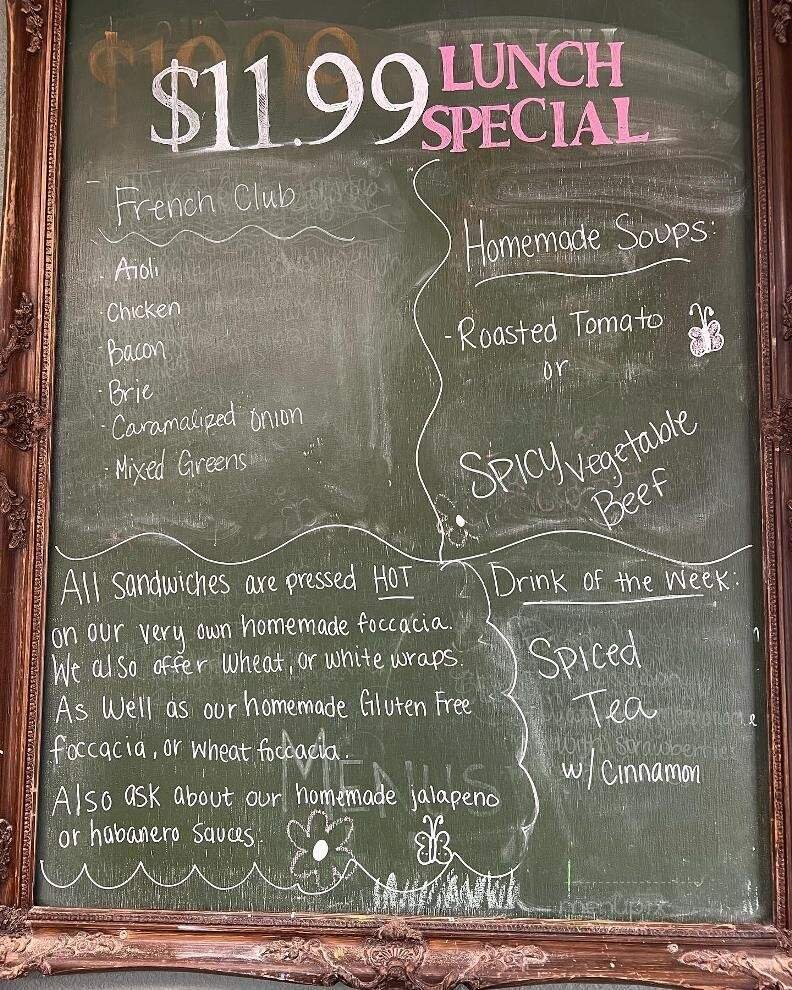 $11.99 LUNCH
SPECIAL
French Club
- Aioli
- Chicken
- Bacon
- Brie
- Caramalized Onion
- Mixed Greens
Homemade Soups:
- Roasted Tomato
or
SPICY Vegetable
Beef
All Sandwiches are pressed HOT
on our very own homemade foccacia.
We also offer Wheat, or white wraps.
As Well as our homemade Gluten Free
foccacia, or wheat foccacia.
Also ask about our homemade jalapeno
or habanero Sauces.
Drink of the Week:
Spiced
Tea
w/ Cinnamon
MENUS
menupix